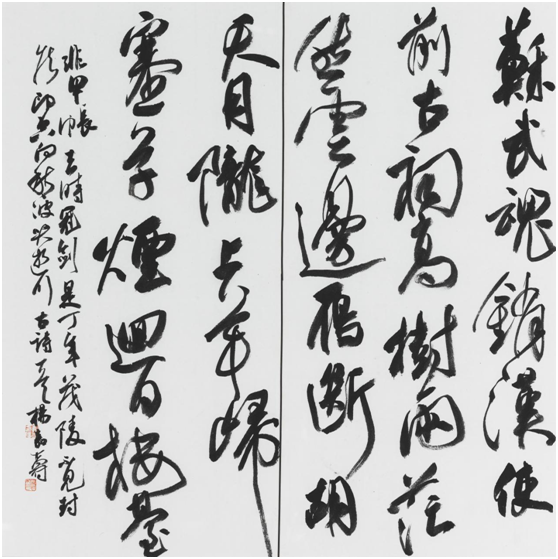 蘇武魂銷漢使
前古祠高樹兩茫
然雲邊雁斷胡
天月隴上羊歸
塞草煙迴日樓臺
非甲帳去時冠劍是丁年茂陵不見封
侯印空向秋波哭逝川古詩一首楊壽